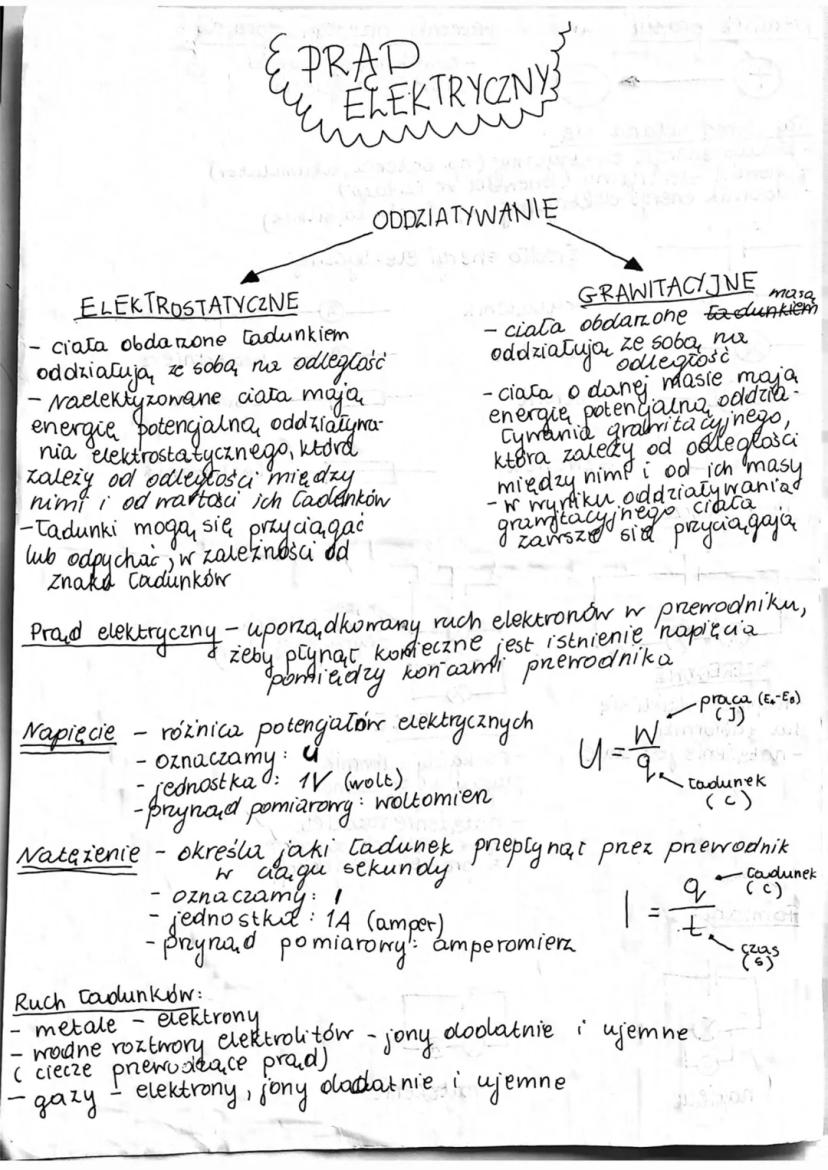 PRĄD
ELEKTRYCZNY
ODDZIAŁYWANIE
ELEKTROSTATYCZNE
- ciała obdarzone ładunkiem
oddziałują ze sobą na odległość
- Naelektyzowane ciała mają
energię potencjalną oddziaływa-
nia elektrostatycznego, która
zależy od odległości między
nimi i od wartości ich ładunków
- ładunki mogą się przyciągać
lub odpychać, w zależności od
znaku ładunków
GRAWITACYJNE
masą
- ciała obdarzone ładunkiem
oddziałują ze sobą na
odległość
- ciała o danej masie mają
energię potencjalną oddzia-
ływania grawitacyjnego,
która zależy od odległości
między nimi i od ich masy
- w wyniku oddziaływania
grawitacyjnego ciała
zawsze się przyciągają
Prąd elektryczny - uporządkowany ruch elektronów w przewodniku,
żeby płynąć konieczne jest istnienie napięcia
pomiędzy końcami przewodnika
Napięcie - różnica potencjałów elektrycznych
- oznaczamy: U
- jednostka: 1V (wolt)
- przyrząd pomiarowy: woltomierz
U = W/q
praca (EA-EB)
(J)
ładunek
(C)
Natężenie - określa jaki ładunek przepłynął przez przewodnik
w ciągu sekundy
- oznaczamy: I
- jednostka: 1A (amper)
- przyrząd pomiarowy: amperomierz
I = q/t
ładunek
(C)
czas
(s)
Ruch ładunków:
- metale - elektrony
- wodne roztwory elektrolitów - jony dodatnie i ujemne
(ciecze przewodzące prąd)
- gazy - elektrony, jony dodatnie i ujemne